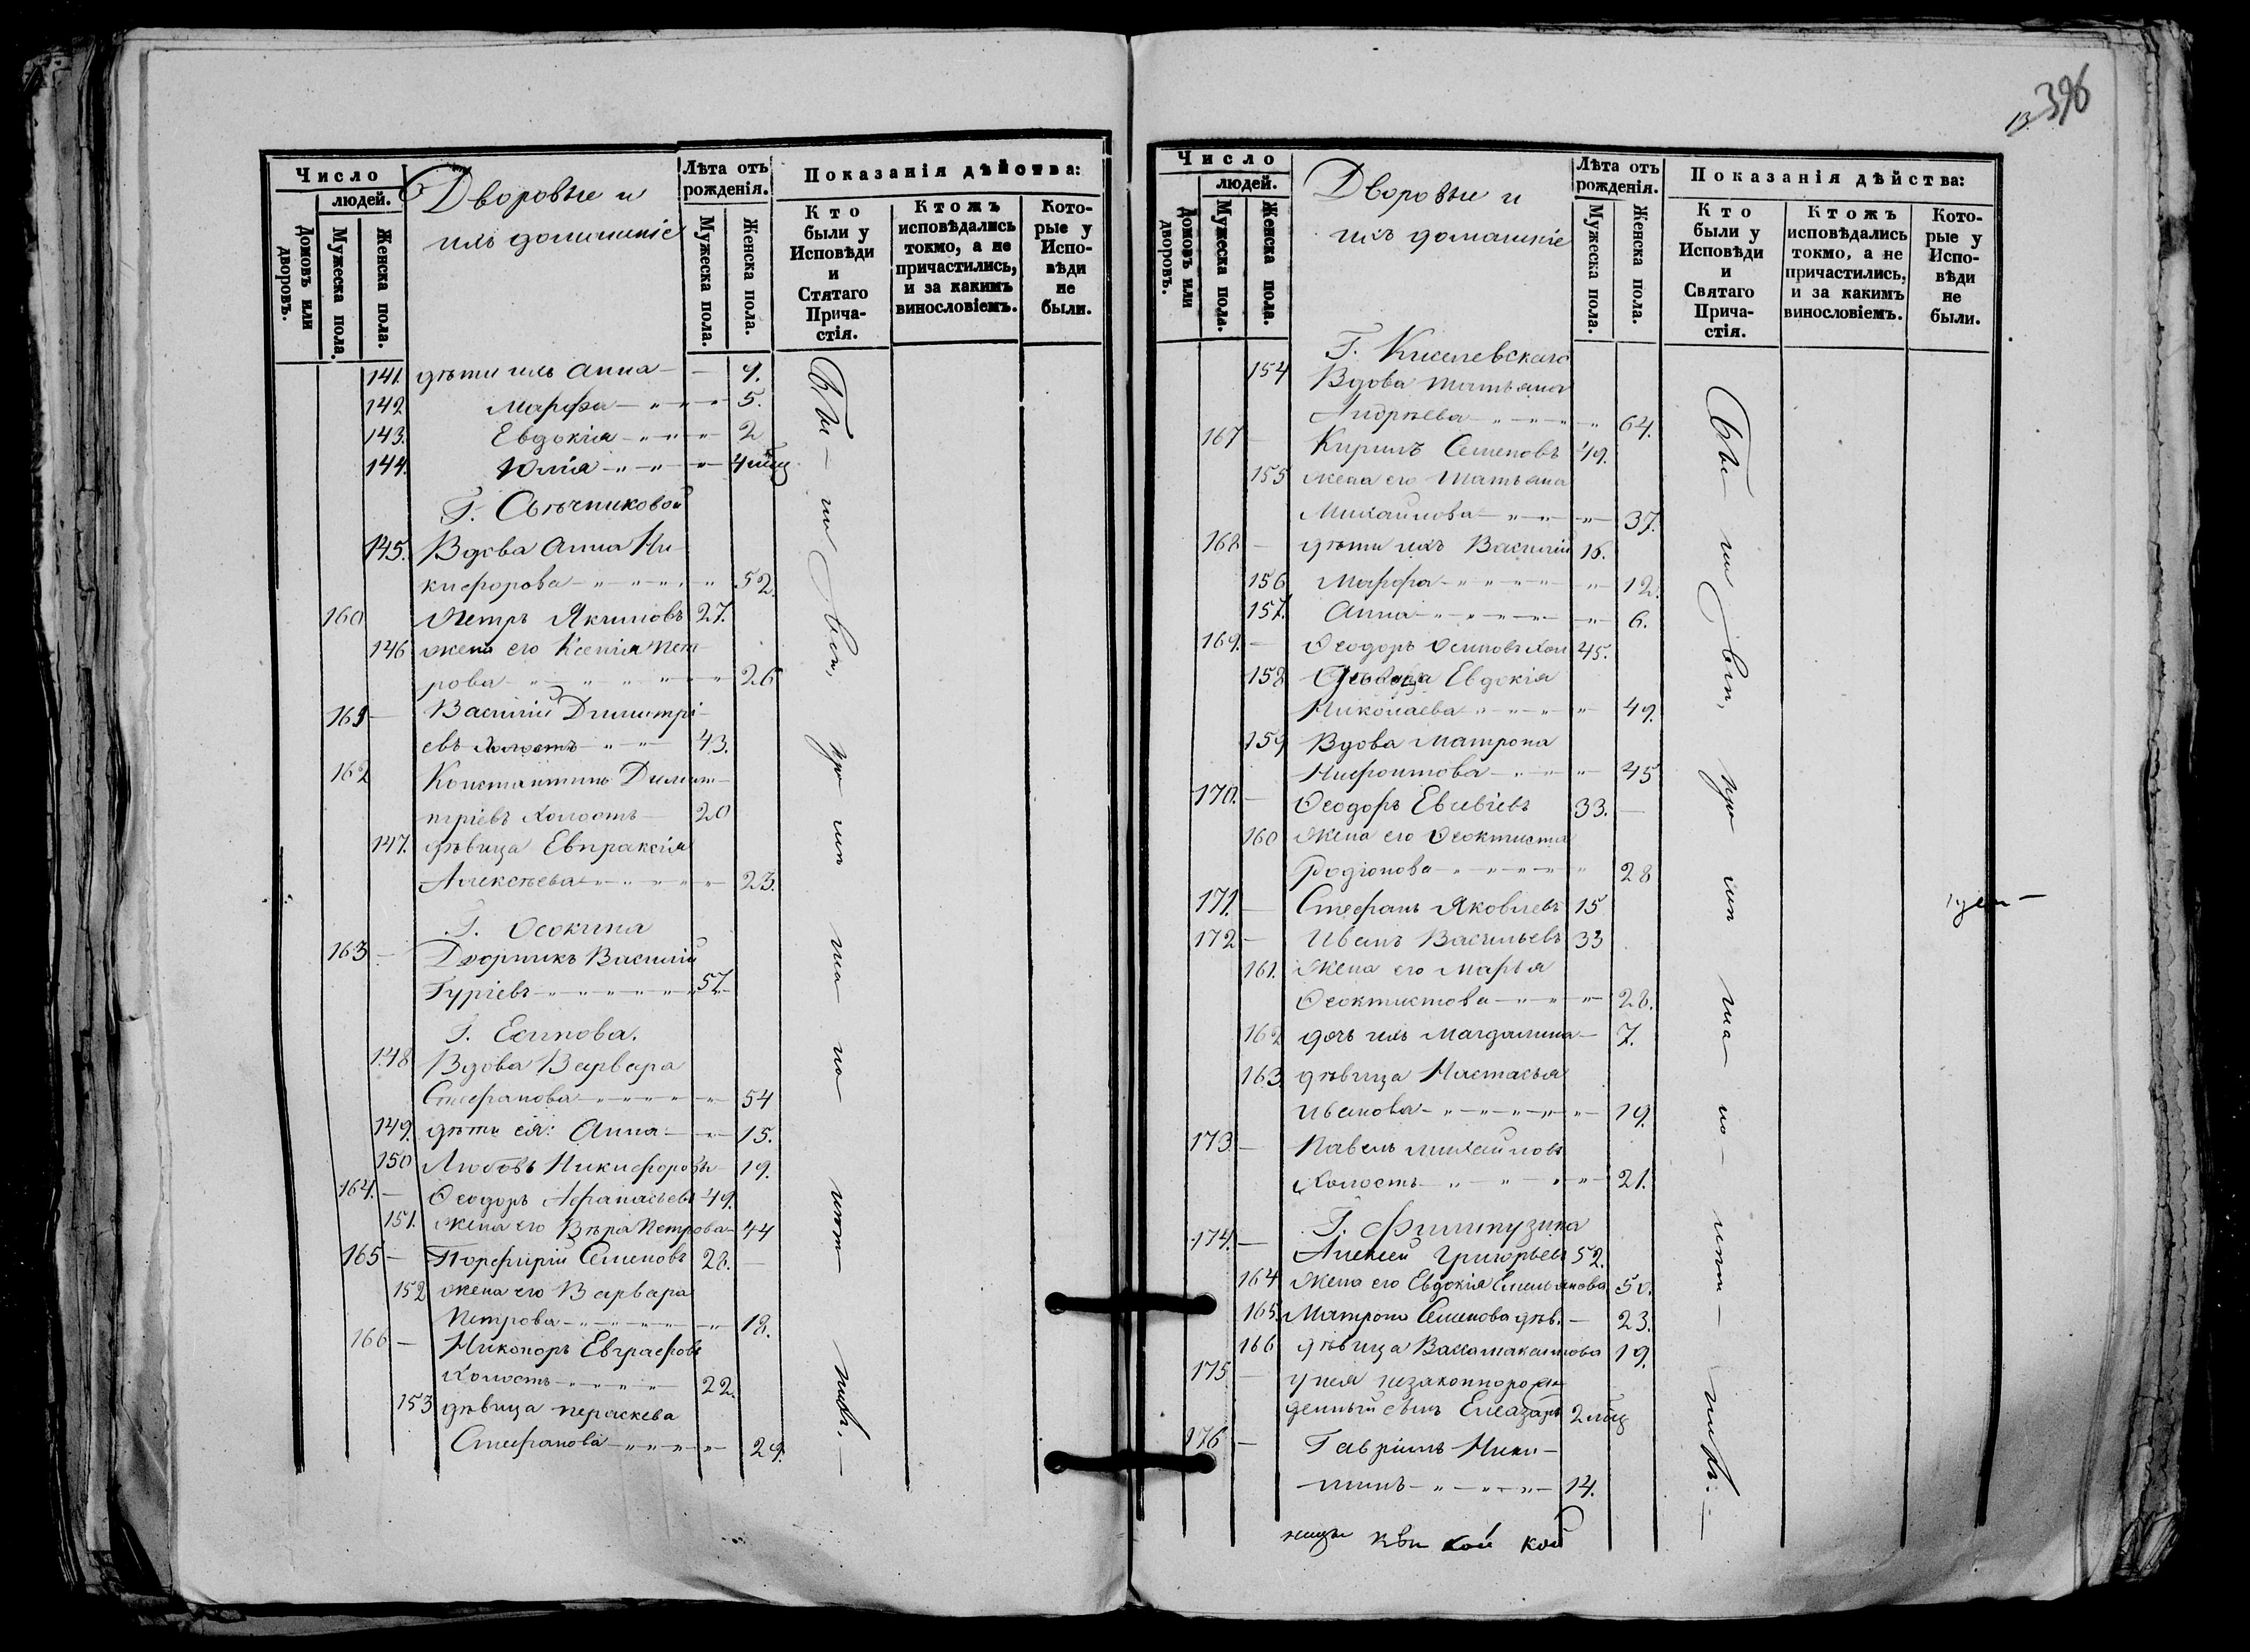 13. 396
Число
людей.
Домовъ или дворовъ.
Мужеска пола.
Женска пола.
Дворовые и
ихъ домашніе
Лѣта отъ рожденія.
Мужеска пола.
Женска пола.
Показанія дѣйства:
Кто были у Исповѣди и Стятаго Прича-стія.
Ктожъ исповѣдались токмо, а не причастились, и за какимъ винословіемъ.
Кото-рые у Испо-вѣди не были.
141. дѣти ихъ Анна —
142 Марфа — 5.
143. Евдокія — 2
144. Юлія — 4 мѣц
Г. Свѣчниковой
145. Вдова Анна Ни-
кифорова — 52.
160 Петръ Якимовъ 27.
146 жена его Ксенія Пет-
рова — 26
161 — Василій Димитрі-
евъ холостъ — 43.
162 Константинъ Димит-
тріевъ холостъ — 20
147. дѣвица Евпраксія
Алексѣева — 23.
Г. Осокина
163 — Дворникъ Василій
Гуріевъ — 57.
Г. Есипова.
148 Вдова Варвара
Стефанова — 54
149. дѣти ея: Анна — 15.
150 Любовь Никифорова — 19.
164. — Ѳеодоръ Афанасьевъ 49.
151. жена его Вѣра Петрова — 44
165 — Порфирій Семеновъ 28. —
152 жена его Варвара
Петрова — 18.
166 — Никоноръ Евграфовъ
холостъ — 22.
153 дѣвица Пераскева
Стефанова — 29.
Всѣ — по
Число
людей.
Домовъ или дворовъ.
Мужеска пола.
Женска пола.
Дворовые и
ихъ домашніе
Лѣта отъ рожденія.
Мужеска пола.
Женска пола.
Показанія дѣйства:
Кто были у Исповѣди и Святаго Прича-стія.
Ктожъ исповѣдались токмо, а не причастились, и за какимъ винословіемъ.
Кото-рые у Испо-вѣди не были.
Г. Киселевскаго
154 Вдова Татьяна
Андрѣева — 64.
167 — Кирилъ Семеновъ 49.
155 жена его Татьяна
Михайлова — 37.
168 — дѣти ихъ Василій 16.
156 Марфа — 12.
157. Анна — 6.
169. — Ѳеодоръ Осиповъ хол 45.
158 Дѣвица Евдокія
Николаева — 49.
159 Вдова Матрона
Нифонтова — 45
170. — Ѳеодоръ Евсевіевъ 33. —
160 жена его Ѳеоктиста
Родіонова — 28
171. — Стефанъ Яковлевъ 15
172 — Иванъ Васильевъ 33
161. Жена его Марья
Ѳеоктистова — 28.
162 дочь ихъ Магдалина — 7.
163. дѣвица Настасья
Иванова — 19.
173 — Павелъ Михайловъ
холостъ — 21.
Г. Филипузина
174. — Алексѣй Григорьевъ 52.
164 Жена его Евдокія Емельянова 50.
165. Матрона Семенова дѣв. — 23.
166 дѣвица Васса Максимова 19.
175 — у нея незаконнорож-
денный сынъ Елеазаръ 2 мѣц
176 — Гавріилъ Ники-
тинъ — 14.